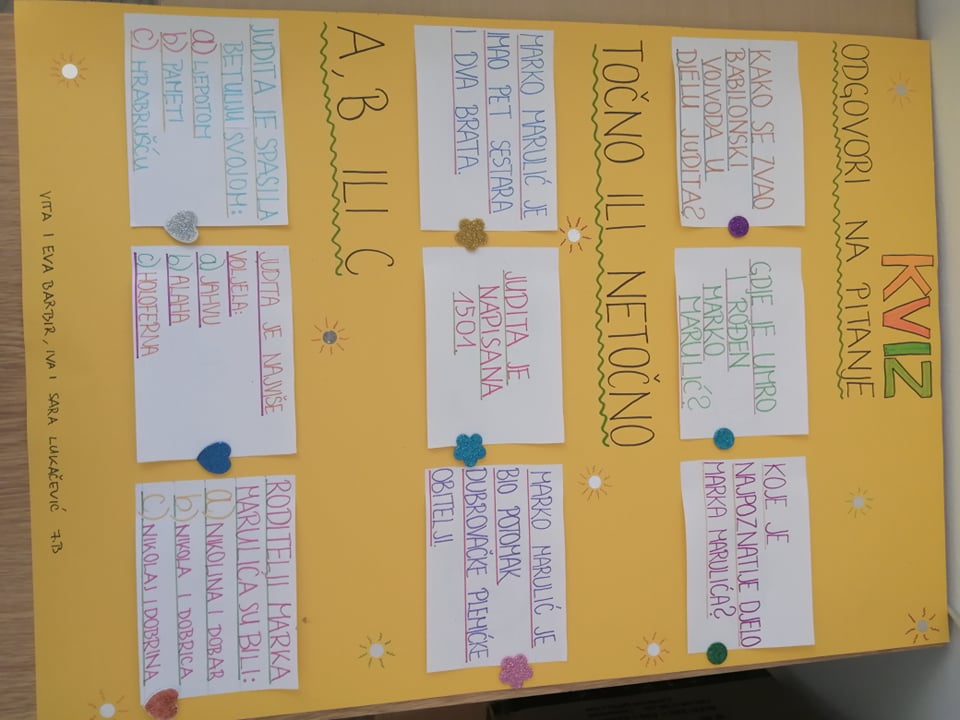 KVIZ
ODGOVORI NA PITANJE
KAKO SE ZVAO
BABILONSKI
VOJVODA U
DJELU JUDITA?
GDJE JE UMRO
I ROĐEN
MARKO
MARULIĆ?
KOJE JE
NAJPOZNATIJE DJELO
MARKA MARULIĆA?
TOČNO ILI NETOČNO
MARKO MARULIĆ JE
IMAO PET SESTARA
I DVA BRATA.
JUDITA JE
NAPISANA
1501.
MARKO MARULIĆ JE
BIO POTOMAK
DUBROVAČKE PLEMIĆKE
OBITELJI.
A, B ILI C
JUDITA JE SPASILA
BETULIJU SVOJOM:
a) LJEPOTOM
b) PAMETI
c) HRABRUŠĆU
JUDITA JE NAJVIŠE
VOLJELA:
a) JAHVU
b) ALAHA
c) HOLOFERNA
RODITELJI MARKA
MARULIĆA SU BILI:
a) NIKOLINA I DOBAR
b) NIKOLA I DOBRICA
c) NIKOLAJ I DOBRINA
VITA I EVA BARBIR, IVA I SARA LUKAČEVIĆ 7.B